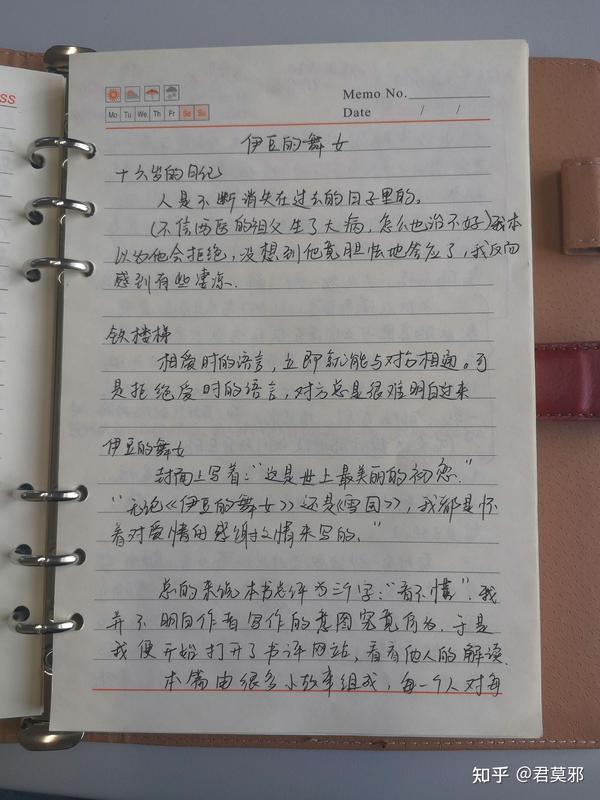 ss
Memo No.
Mo Tu We Th Fr Sa Su
Date / /
伊豆的舞女
十六岁的日记
人是不断消失在过去的日子里的。
(不信西医的祖父生了大病,怎么也治不好)我本
以为他会拒绝,没想到他竟胆怯地答应了,我反而
感到有些凄凉.
铁楼梯
相爱时的语言,立即就能与对方相通。可
是拒绝爱时的语言,对方总是很难明白过来
伊豆的舞女
封面上写着:“这是世上最美丽的初恋.”
“无论《伊豆的舞女》还是《雪国》,我都是怀
着对爱情的感谢之情来写的.”
总的来说本书总评为三个字:“看不懂”.我
并不明白作者写作的意图究竟何为.于是
我便开始打开了书评网站,看看他人的解读.
本篇由很多小故事组成,每一个人对每
知乎 @君莫邪